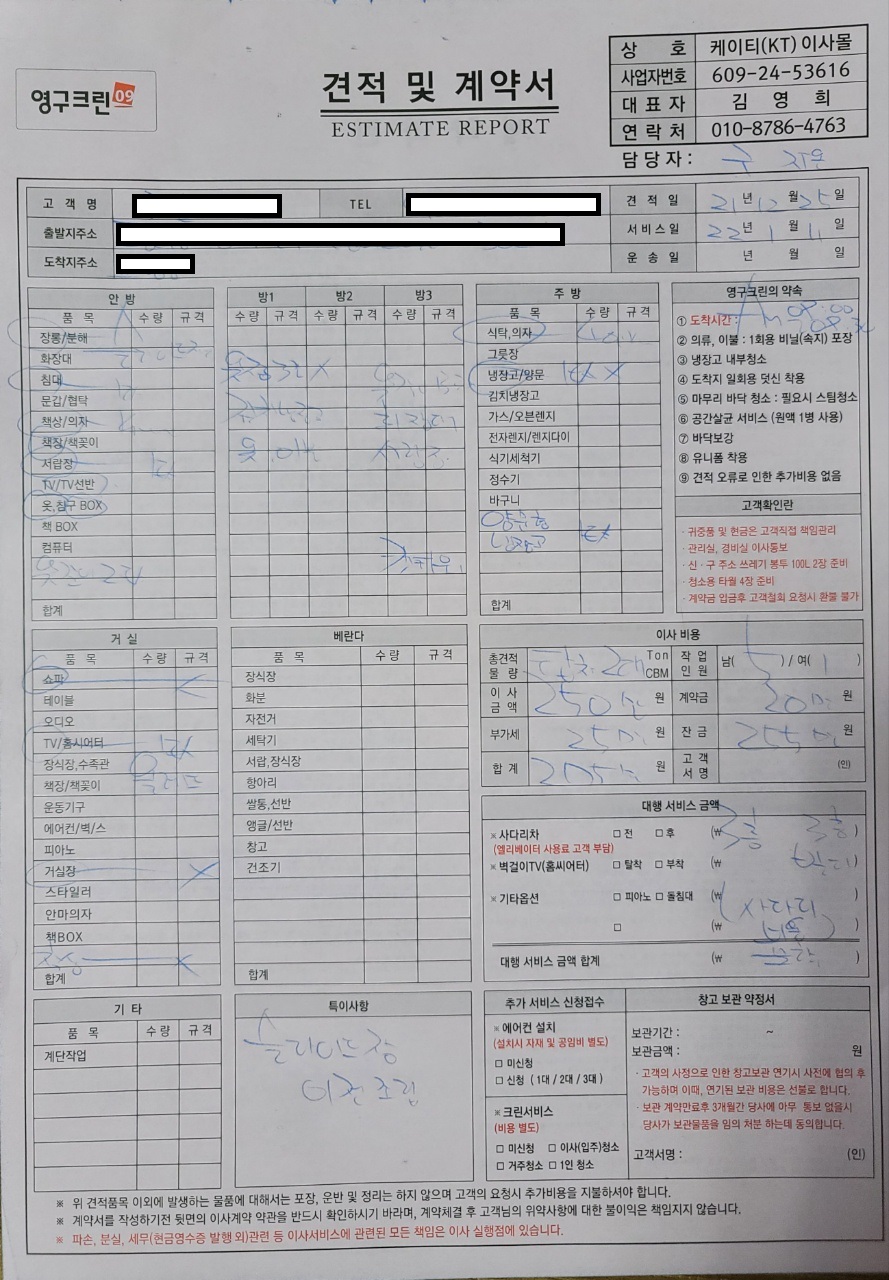 영구크린 09
견적 및 계약서
ESTIMATE REPORT
상 호 케이티(KT) 이사몰
사업자번호 609-24-53616
대 표 자 김 영 희
연 락 처 010-8786-4763
담당자 :
고 객 명 TEL 견 적 일 21년 12월 25일
출발지주소 서비스일 22년 1월 11일
도착지주소 운 송 일 년 월 일
안 방
품 목 수 량 규 격
장롱/분해
화장대
침대
문갑/협탁
책상/의자
책장/책꽂이
서랍장
TV/TV선반
옷,침구 BOX
책 BOX
컴퓨터
합계
방1 방2 방3
수 량 규 격 수 량 규 격 수 량 규 격
주 방
품 목 수 량 규 격
식탁,의자
그릇장
냉장고/양문
김치냉장고
가스/오븐렌지
전자렌지/렌지다이
식기세척기
정수기
바구니
냉장고
합계
영구크린의 약속
① 도착시간 :
② 의류, 이불 : 1회용 비닐(속지) 포장
③ 냉장고 내부청소
④ 도착지 일회용 덧신 착용
⑤ 마무리 바닥 청소 : 필요시 스팀청소
⑥ 공간살균 서비스 (원액 1병 사용)
⑦ 바닥보강
⑧ 유니폼 착용
⑨ 견적 오류로 인한 추가비용 없음
고객확인란
· 귀중품 및 현금은 고객직접 책임관리
· 관리실, 경비실 이사통보
· 신 · 구 주소 쓰레기 봉투 100L 2장 준비
· 청소용 타월 4장 준비
· 계약금 입금후 고객철회 요청시 환불 불가
거 실
품 목 수 량 규 격
쇼파
테이블
오디오
TV/홈시어터
장식장,수족관
책장/책꽂이
운동기구
에어컨/벽/스
피아노
거실장
스타일러
안마의자
책BOX
합계
베란다
품 목 수 량 규 격
장식장
화분
자전거
세탁기
서랍,장식장
항아리
쌀통,선반
앵글/선반
창고
건조기
합계
이사 비용
총견적 물 량 Ton CBM 작 업 인 원 남( 5 ) / 여( 1 )
이 사 금 액 250만 원 계약금 20만 원
부가세 25만 원 잔 금 255만 원
합 계 원 고 객 서 명 (인)
대행 서비스 금액
※ 사다리차 □ 전 □ 후 (₩ 3층 3층 )
(엘리베이터 사용료 고객 부담)
※ 벽걸이TV(홈씨어터) □ 탈착 □ 부착 (₩ )
※ 기타옵션 □ 피아노 □ 돌침대 (₩ 사다리 )
□ (₩ 비용 )
대행 서비스 금액 합계 (₩ )
기 타
품 목 수 량 규 격
계단작업
특이사항
슬라이드장
이전조립
추가 서비스 신청접수
※ 에어컨 설치
(설치시 자재 및 공임비 별도)
□ 미신청
□ 신청 ( 1대 / 2대 / 3대 )
※ 크린서비스
(비용 별도)
□ 미신청 □ 이사(입주)청소
□ 거주청소 □ 1인 청소
창고 보관 약정서
보관기간 : ~
보관금액 : 원
· 고객의 사정으로 인한 창고보관 연기시 사전에 협의 후
가능하며 이때, 연기된 보관 비용은 선불로 합니다.
· 보관 계약만료후 3개월간 당사에 아무 통보 없을시
당사가 보관물품을 임의 처분 하는데 동의합니다.
고객서명 : (인)
※ 위 견적품목 이외에 발생하는 물품에 대해서는 포장, 운반 및 정리는 하지 않으며 고객의 요청시 추가비용을 지불하셔야 합니다.
※ 계약서를 작성하기전 뒷면의 이사계약 약관을 반드시 확인하시기 바라며, 계약체결 후 고객님의 위약사항에 대한 불이익은 책임지지 않습니다.
※ 파손, 분실, 세무(현금영수증 발행 외)관련 등 이사서비스에 관련된 모든 책임은 이사 실행점에 있습니다.